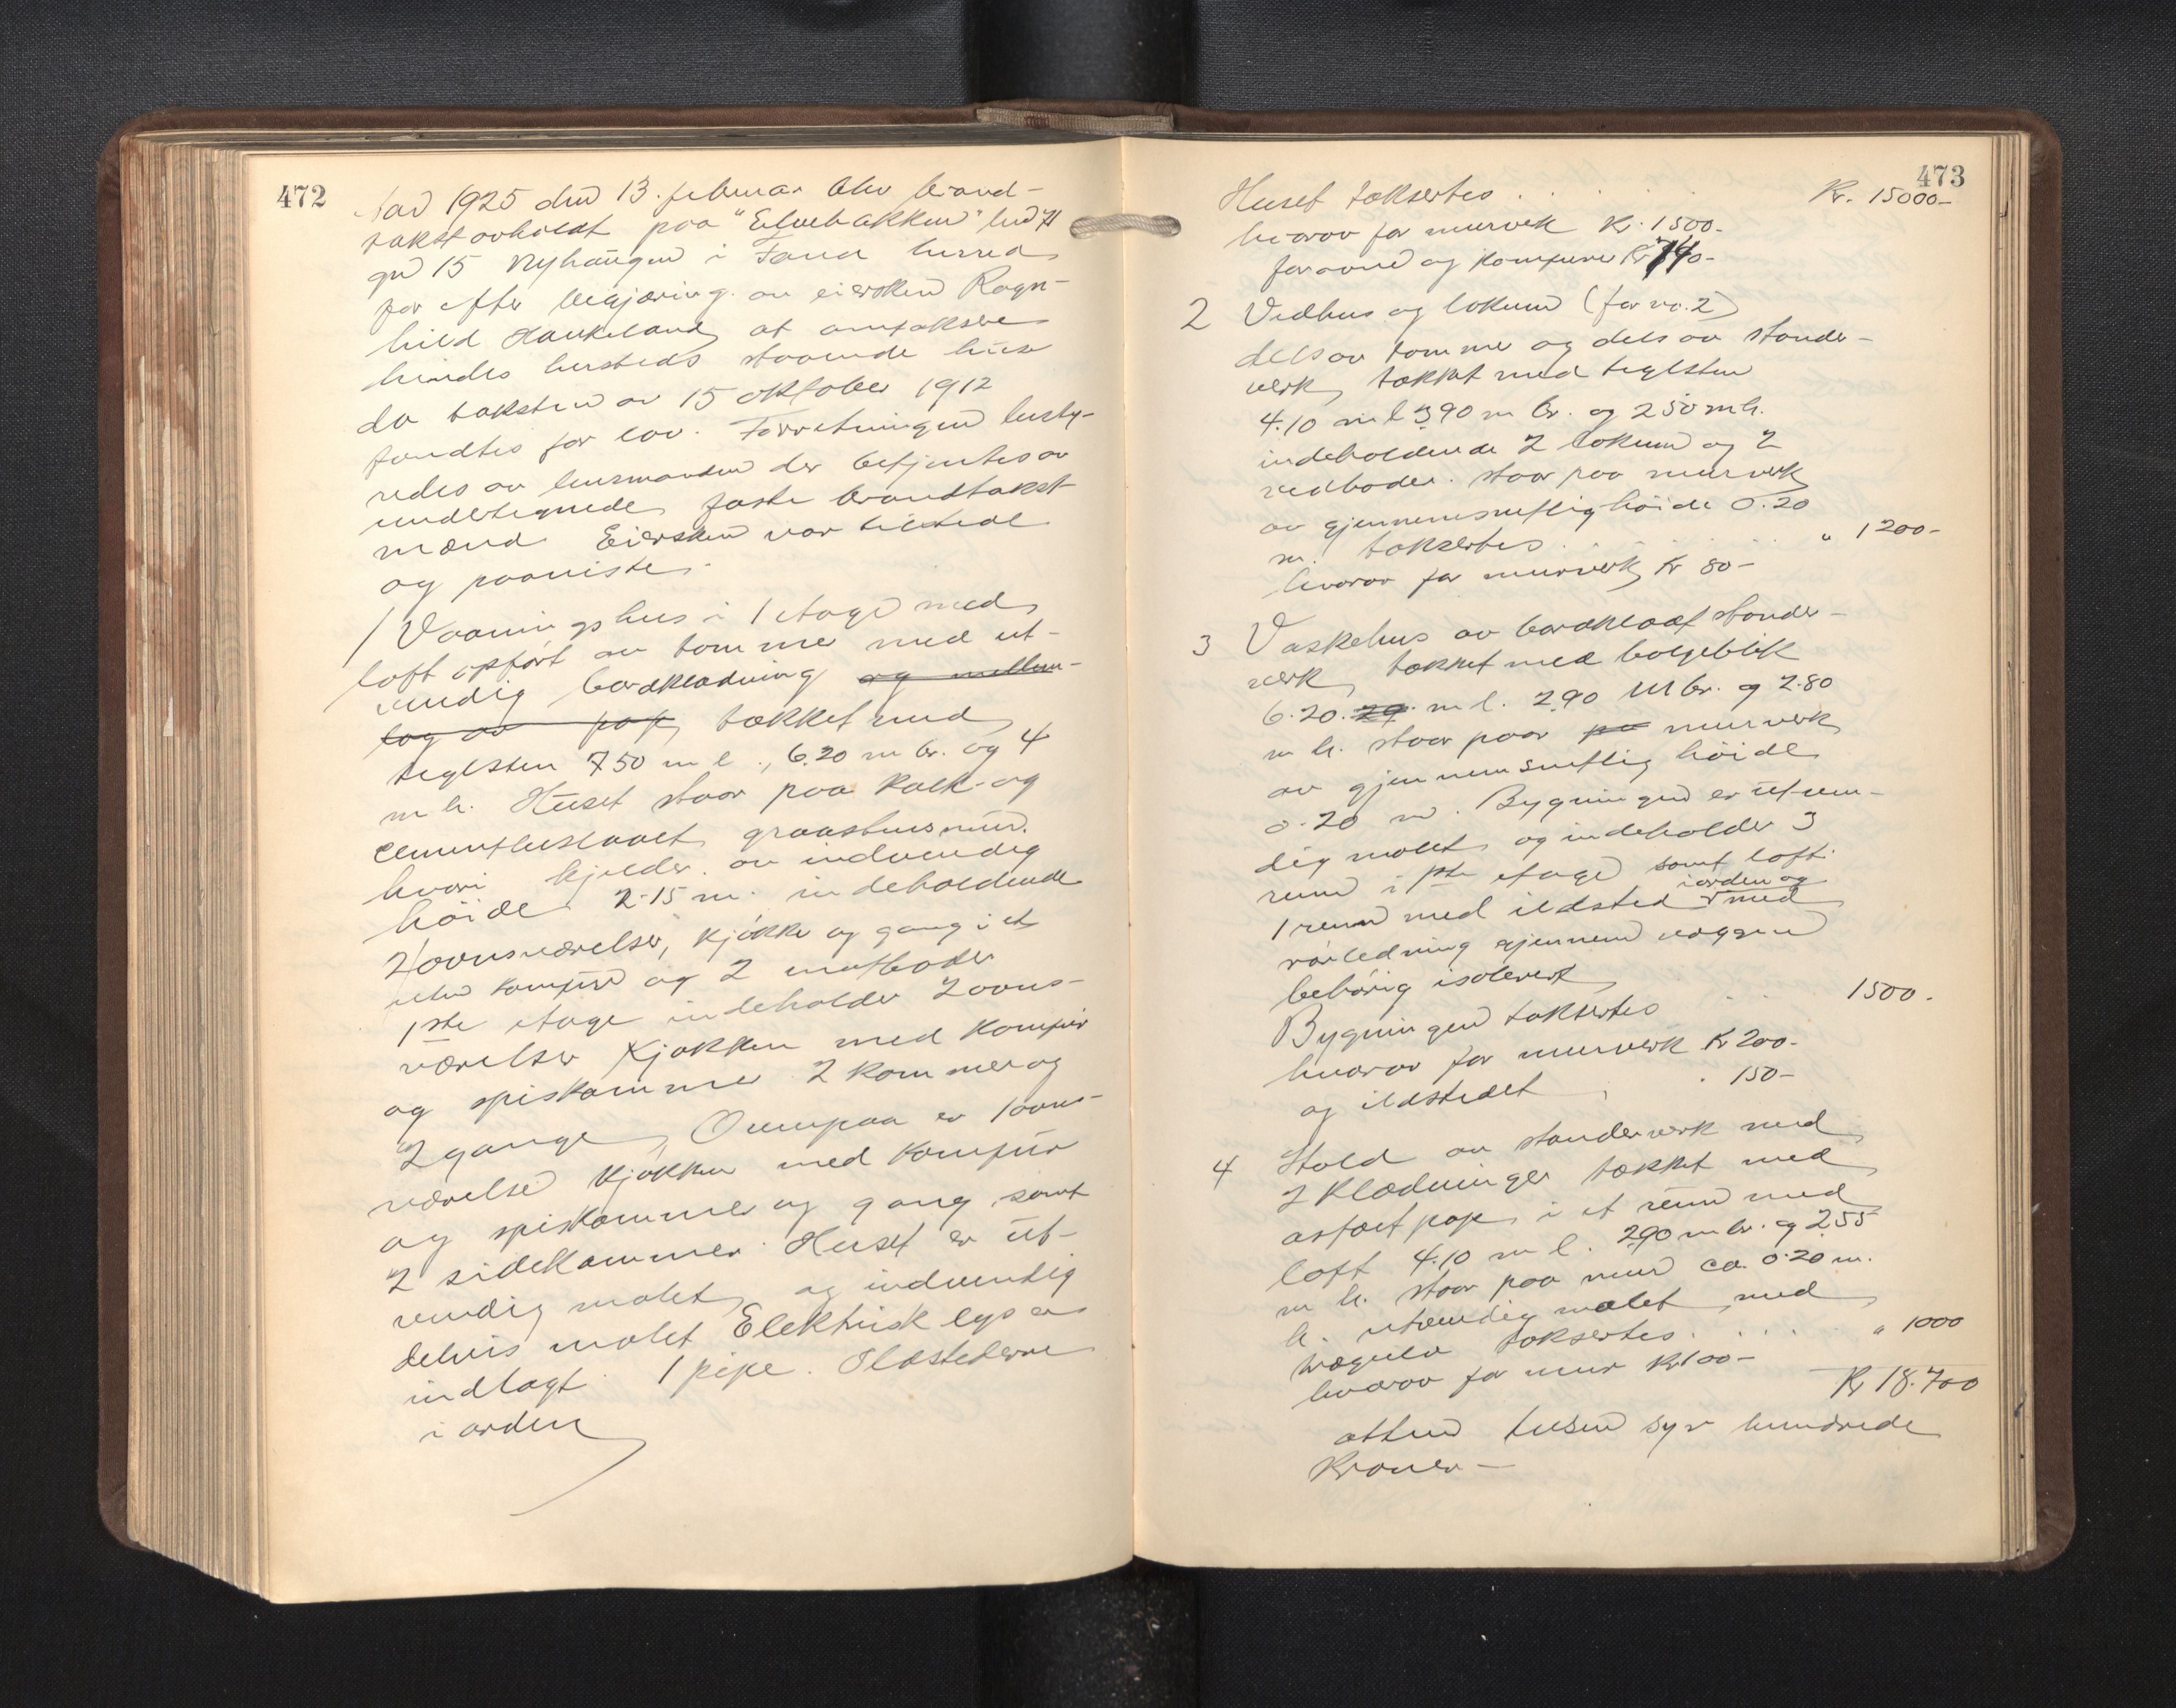 472
Aar 1925 den 13. februar blev brand-
takst avholdt paa "Elvebakken" br no 71
gn 15 Nyhaugen i Fana herred
for efter begjæring av eiersken Ragn-
hild Haukeland at omtaksere
hendes hersteds staaende huse
da taksten av 15 oktober 1912
fandtes for lav. Forretningen besty-
redes av lensmanden der betjentes av
undertegnede faste brandtakst
mænd Eiersken var tilstede
og paaviste.
1 Vaaningshus i 1 etage med
loft opført av tømmer med ut-
vendig bordklædning og mellem-
lag av pap, tækket med
teglsten 7.50 m l., 6.20 m br. og 4
m h. Huset staar paa kalk- og
cementbeslaaet graastensmur.
hvori kjelder av indvendig
høide 2.15 m. indeholdende
2 ovnsværelser, kjøkken og gang i et
uten komfur og 2 matboder
1ste etage indeholder 2 ovns-
værelser kjøkken med komfur
og spiskammer 2 kommer og
2 gange, Ovenpaa er 1 ovns-
værelse kjøkken med komfur
og spiskammer og gang samt
2 sidekammer. Huset er ut-
vendig malet og indvendig
delvis malet Elektrisk lys er
indlagt. 1 pipe. Ildstederne
i orden
473
Huset taksertes . . . . Kr. 15000-
hvorav for murverk Kr. 1500-
for ovne og komfurer Kr 740-
2 Vedhus og lokum (for no. 2)
dels av tømmer og dels av stender-
verk, tækket med teglsten
4.10 m l 3.90 m br. og 2.50 m h.
indeholdende 2 lokum og 2
vedboder. staar paa murverk
av gjennemsnitlig høide 0.20
m. taksertes . . . . " 1200-
hvorav for murverk Kr 80-
3 Vaskehus av bordklædt stender-
verk, tækket med bølgeblik
6.20. 29 m l. 2.90 m br. og 2.80
m h. staar paa pa murverk
av gjennemsnitlig høide
0.20 m. Bygningen er utven-
dig malet og indeholder 3
rum i 1ste etage samt loft.
i orden og
1 rum med ildsted med
rørledning gjennem væggen
behørig isolert,
Bygningen taksertes . . . 1500.
hvorav for murverk Kr 200-
og ildstedet . . 150-
4 Stald av stenderverk med
2 klædninger tækket med
asfaltpap, i et rum med
loft 4.10 m l. 2.90 m br. og 2.55
m h. staar paa mur ca. 0.20 m.
h. utvendig malet med
taksertes . . . . " 1000
hvorav for mur Kr 100-
Kr 18.700
atten tusen syv hundrede
Kroner —